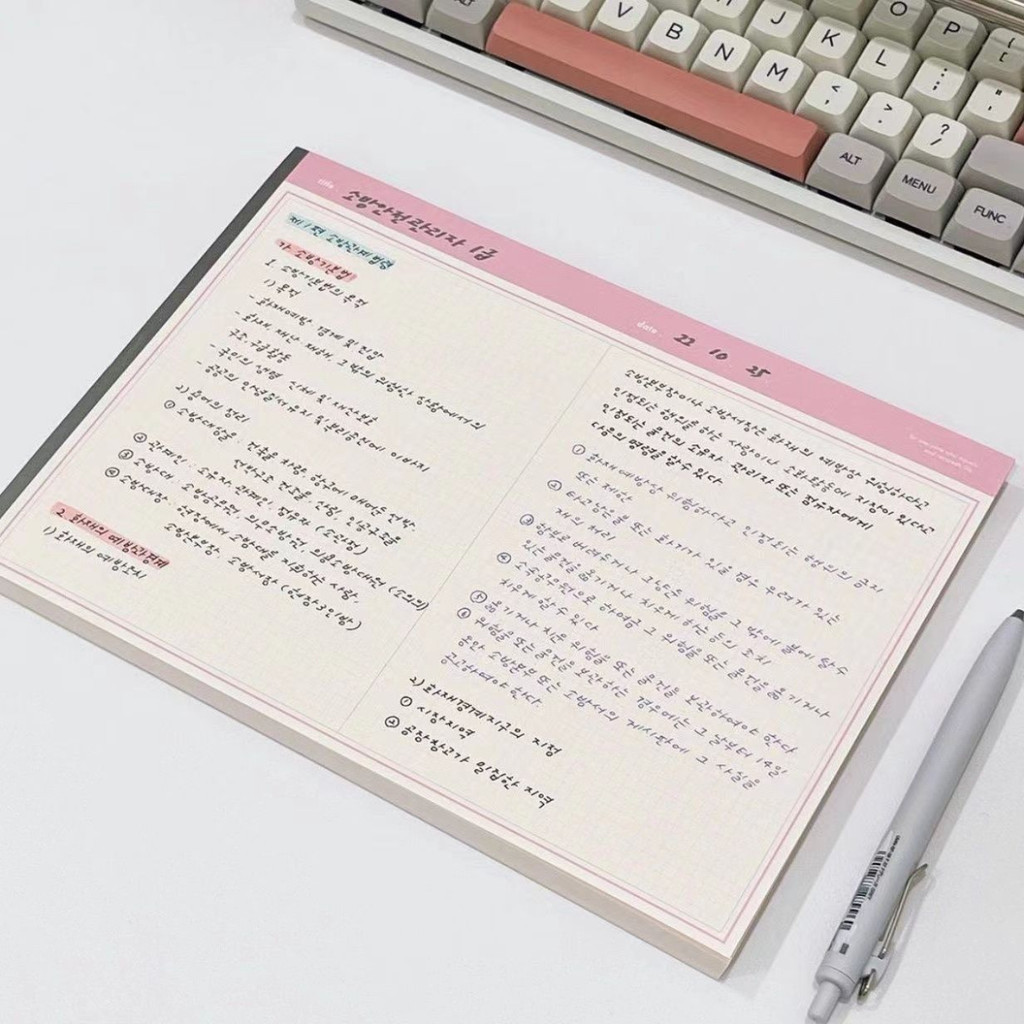 ALT
V
B
N
M
J
K
L
O
P
<
,
>
.
?
/
:
;
"
'
ALT
MENU
FUNC
title
소방안전관리자 1급
date
22 10 25
제1편 소방관계법령
가. 소방기본법
1. 소방기본법의 목적
1) 목적
- 화재예방 경계 및 진압
- 화재, 재난 재해, 그 밖의 위급한 상황에서의
구조·구급활동
- 국민의 생명 신체 및 재산보호
- 공공의 안녕질서 유지 및 복리증진에 이바지
2) 용어의 정리
① 소방대상물 : 건축물, 차량, 항구에 매어둔 선박
선박건조 구조물, 산림, 인공구조물
② 관계인 : 소유자, 관리인, 점유자 (소관점)
③ 소방대 : 소방공무원, 의무소방원, 의용소방대원 (소의의)
④ 소방대장 : 현장에서 소방대를 지휘하는 사람.
소방본부장 소방서장 (현장3인방)
2. 화재의 예방과경계
1) 화재의 예방조치
소방본부장이나 소방서장은 화재의 예방상 위험하다고
인정되는 행위를 하는 사람이나 소화활동에 지장이 있다고
인정되는 물건의 소유자 관리자 또는 점유자에게
다음의 명령을 할 수 있다
① 화재예방상 위험하다고 인정되는 행위의 금지
또는 제한
② 타고남은 불 또는 화기가 있을 염려 우려가 있는
재의 처리
③ 함부로 버려두거나 그냥둔 위험물 그 밖에 불에 탈 수
있는 물건을 옮기거나 치우게 하는 등의 조치
④ 소속공무원으로 하여금 그 위험물 또는 물건을 옮기거나
치우게 할 수 있다
⑤ 옮기거나 치운 위험물 또는 물건을 보관하여야 한다
⑥ 위험물 또는 물건을 보관하는 경우에는 그 날부터 14일
동안 소방본부 또는 소방서의 게시판에 그 사실을
공고하여야 한다
2) 화재경계지구의 지정
① 시장지역
② 공장창고가 밀집한 지역